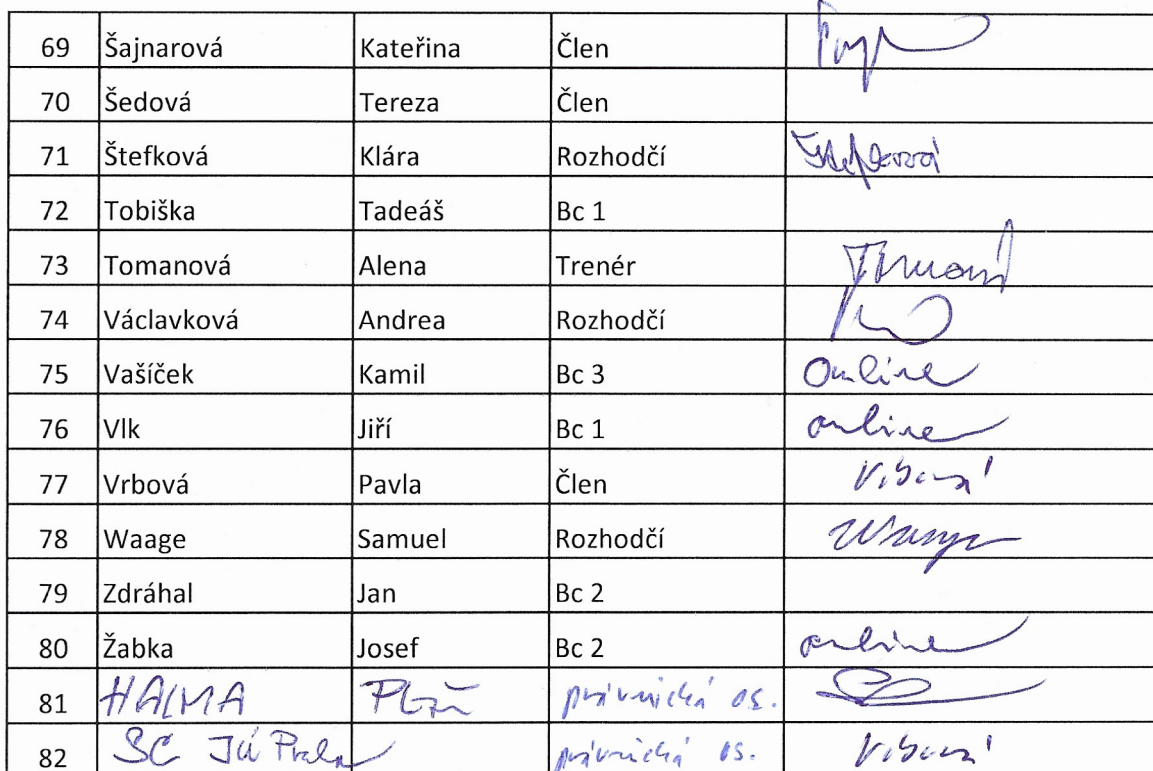 69 Šajnarová Kateřina Člen
70 Šedová Tereza Člen
71 Štefková Klára Rozhodčí Štefková
72 Tobiška Tadeáš Bc 1
73 Tomanová Alena Trenér
74 Václavková Andrea Rozhodčí
75 Vašíček Kamil Bc 3 Online
76 Vlk Jiří Bc 1 online
77 Vrbová Pavla Člen Vrbová
78 Waage Samuel Rozhodčí Waage
79 Zdráhal Jan Bc 2
80 Žabka Josef Bc 2 online
81 HALMA právnická os.
82 SC Praha právnická os. Vrbová